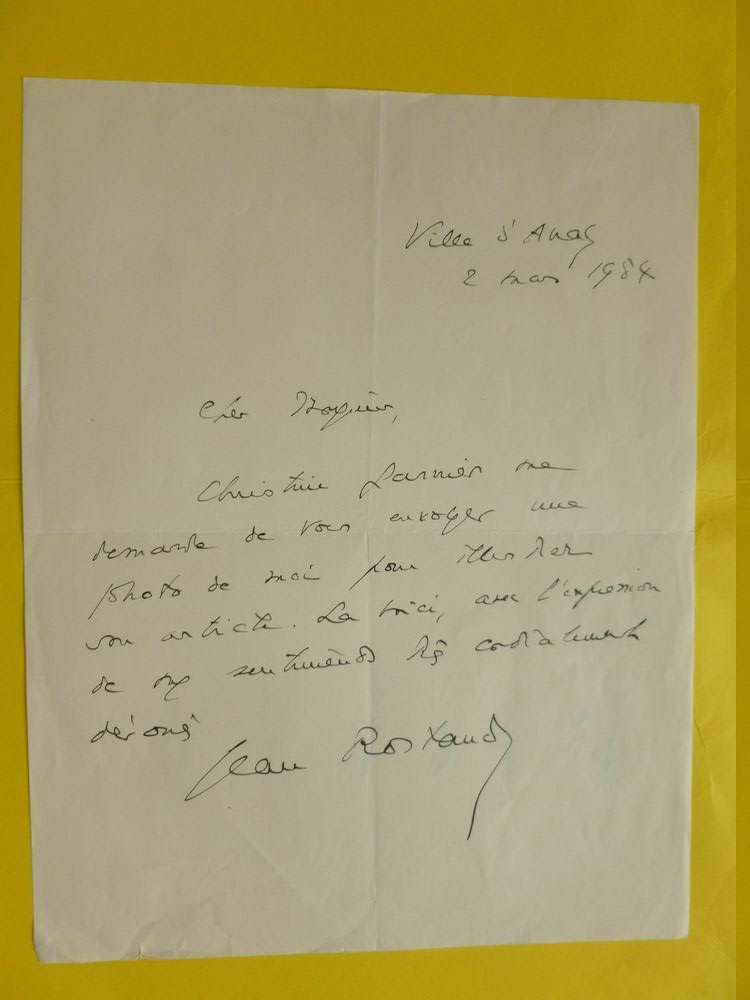 Ville d'Avray
2 mars 1954
Cher Monsieur,
Christine Garnier me
demande de vous envoyer une
photo de moi pour illustrer
son article. La voici, avec l'expression
de mes sentiments très cordialement
dévoués
Jean Rostand